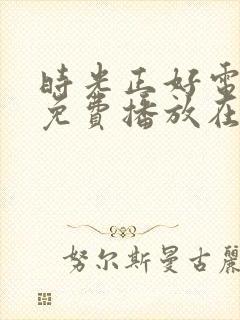 時光正好電
免費播放在
努尔斯曼古麗